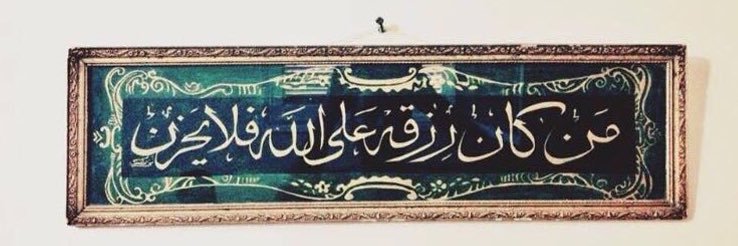 مَن كان رزقه عَلى الله فلا يَحزن